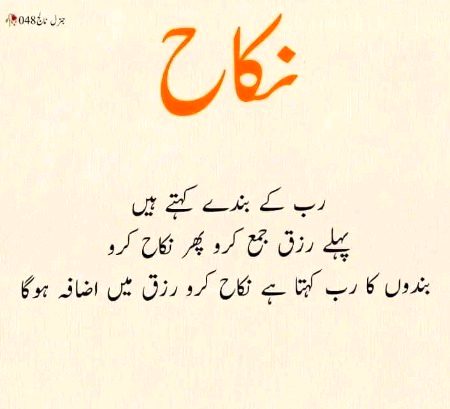 جنرل نالج048
نکاح
رب کے بندے کہتے ہیں
پہلے رزق جمع کرو پھر نکاح کرو
بندوں کا رب کہتا ہے نکاح کرو رزق میں اضافہ ہوگا